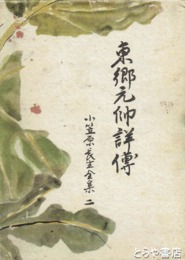 東郷元帥詳傳
小笠原長生全集 二
とらや書店